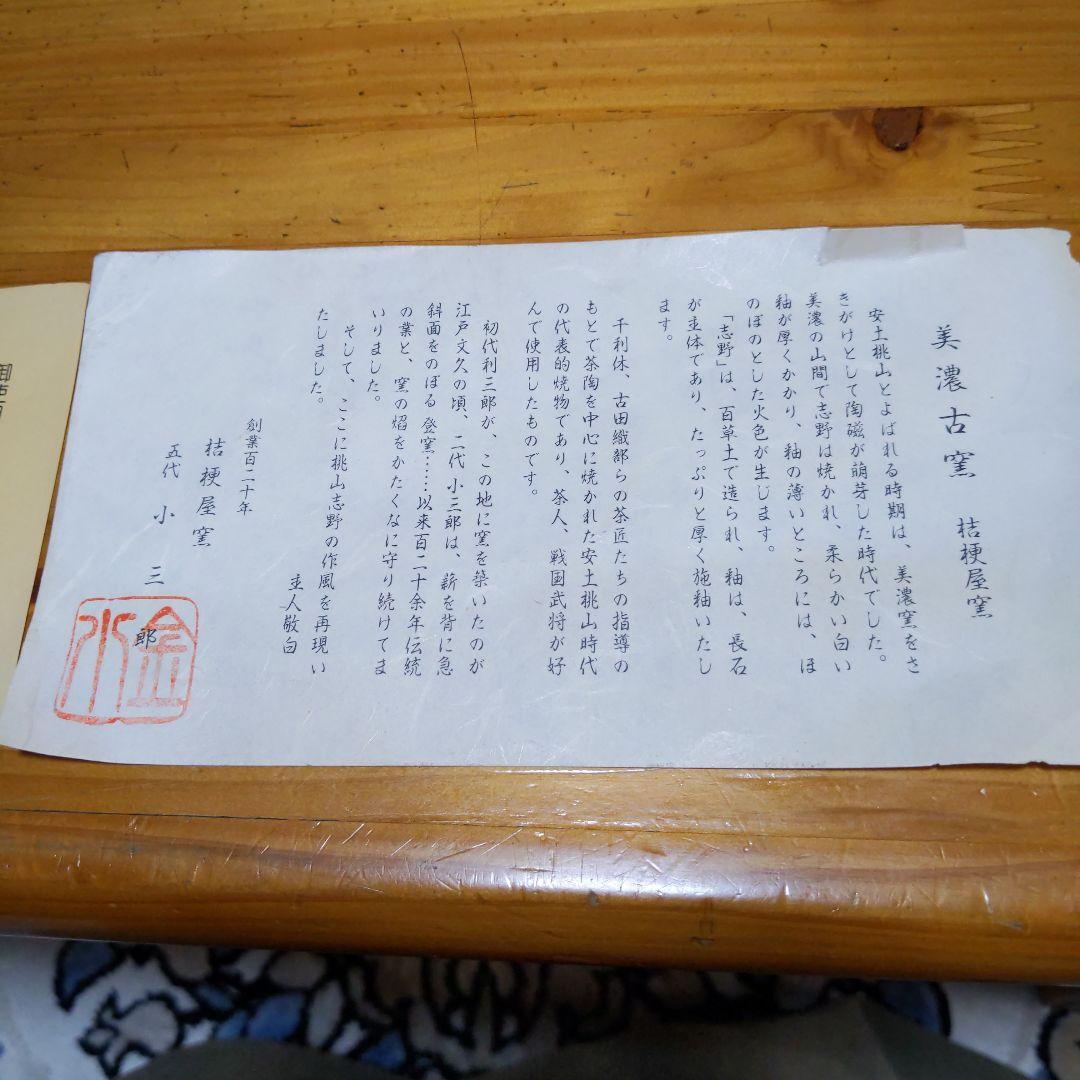 美濃古窯 桔梗屋窯
安土桃山とよばれる時期は、美濃窯をさ
きがけとして陶磁が萌芽した時代でした。
美濃の山間で志野は焼かれ、柔らかい白い
釉が厚くかかり、釉の薄いところには、ほ
のぼのとした火色が生じます。
「志野」は、百草土で造られ、釉は、長石
が主体であり、たっぷりと厚く施釉いたし
ます。
千利休、古田織部らの茶匠たちの指導の
もとで茶陶を中心に焼かれた安土桃山時代
の代表的焼物であり、茶人、戦国武将が好
んで使用したものです。
初代利三郎が、この地に窯を築いたのが
江戸文久の頃、二代小三郎は、薪を背に急
斜面をのぼる登窯……以来百二十余年伝統
の業と、窯の焰をかたくなに守り続けてま
いりました。
そして、ここに桃山志野の作風を再現い
たしました。
主人敬白
創業百二十年
桔梗屋窯
五代 小三郎